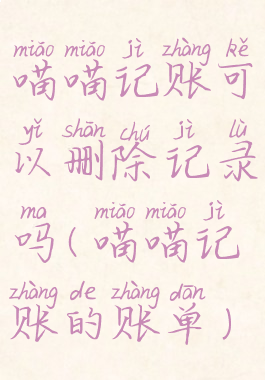 miāo miāo jì zhàng kě
喵喵记账可
yǐ shān chú jì lù
以删除记录
ma miāo miāo jì
吗(喵喵记
zhàng de zhàng dān
账的账单)